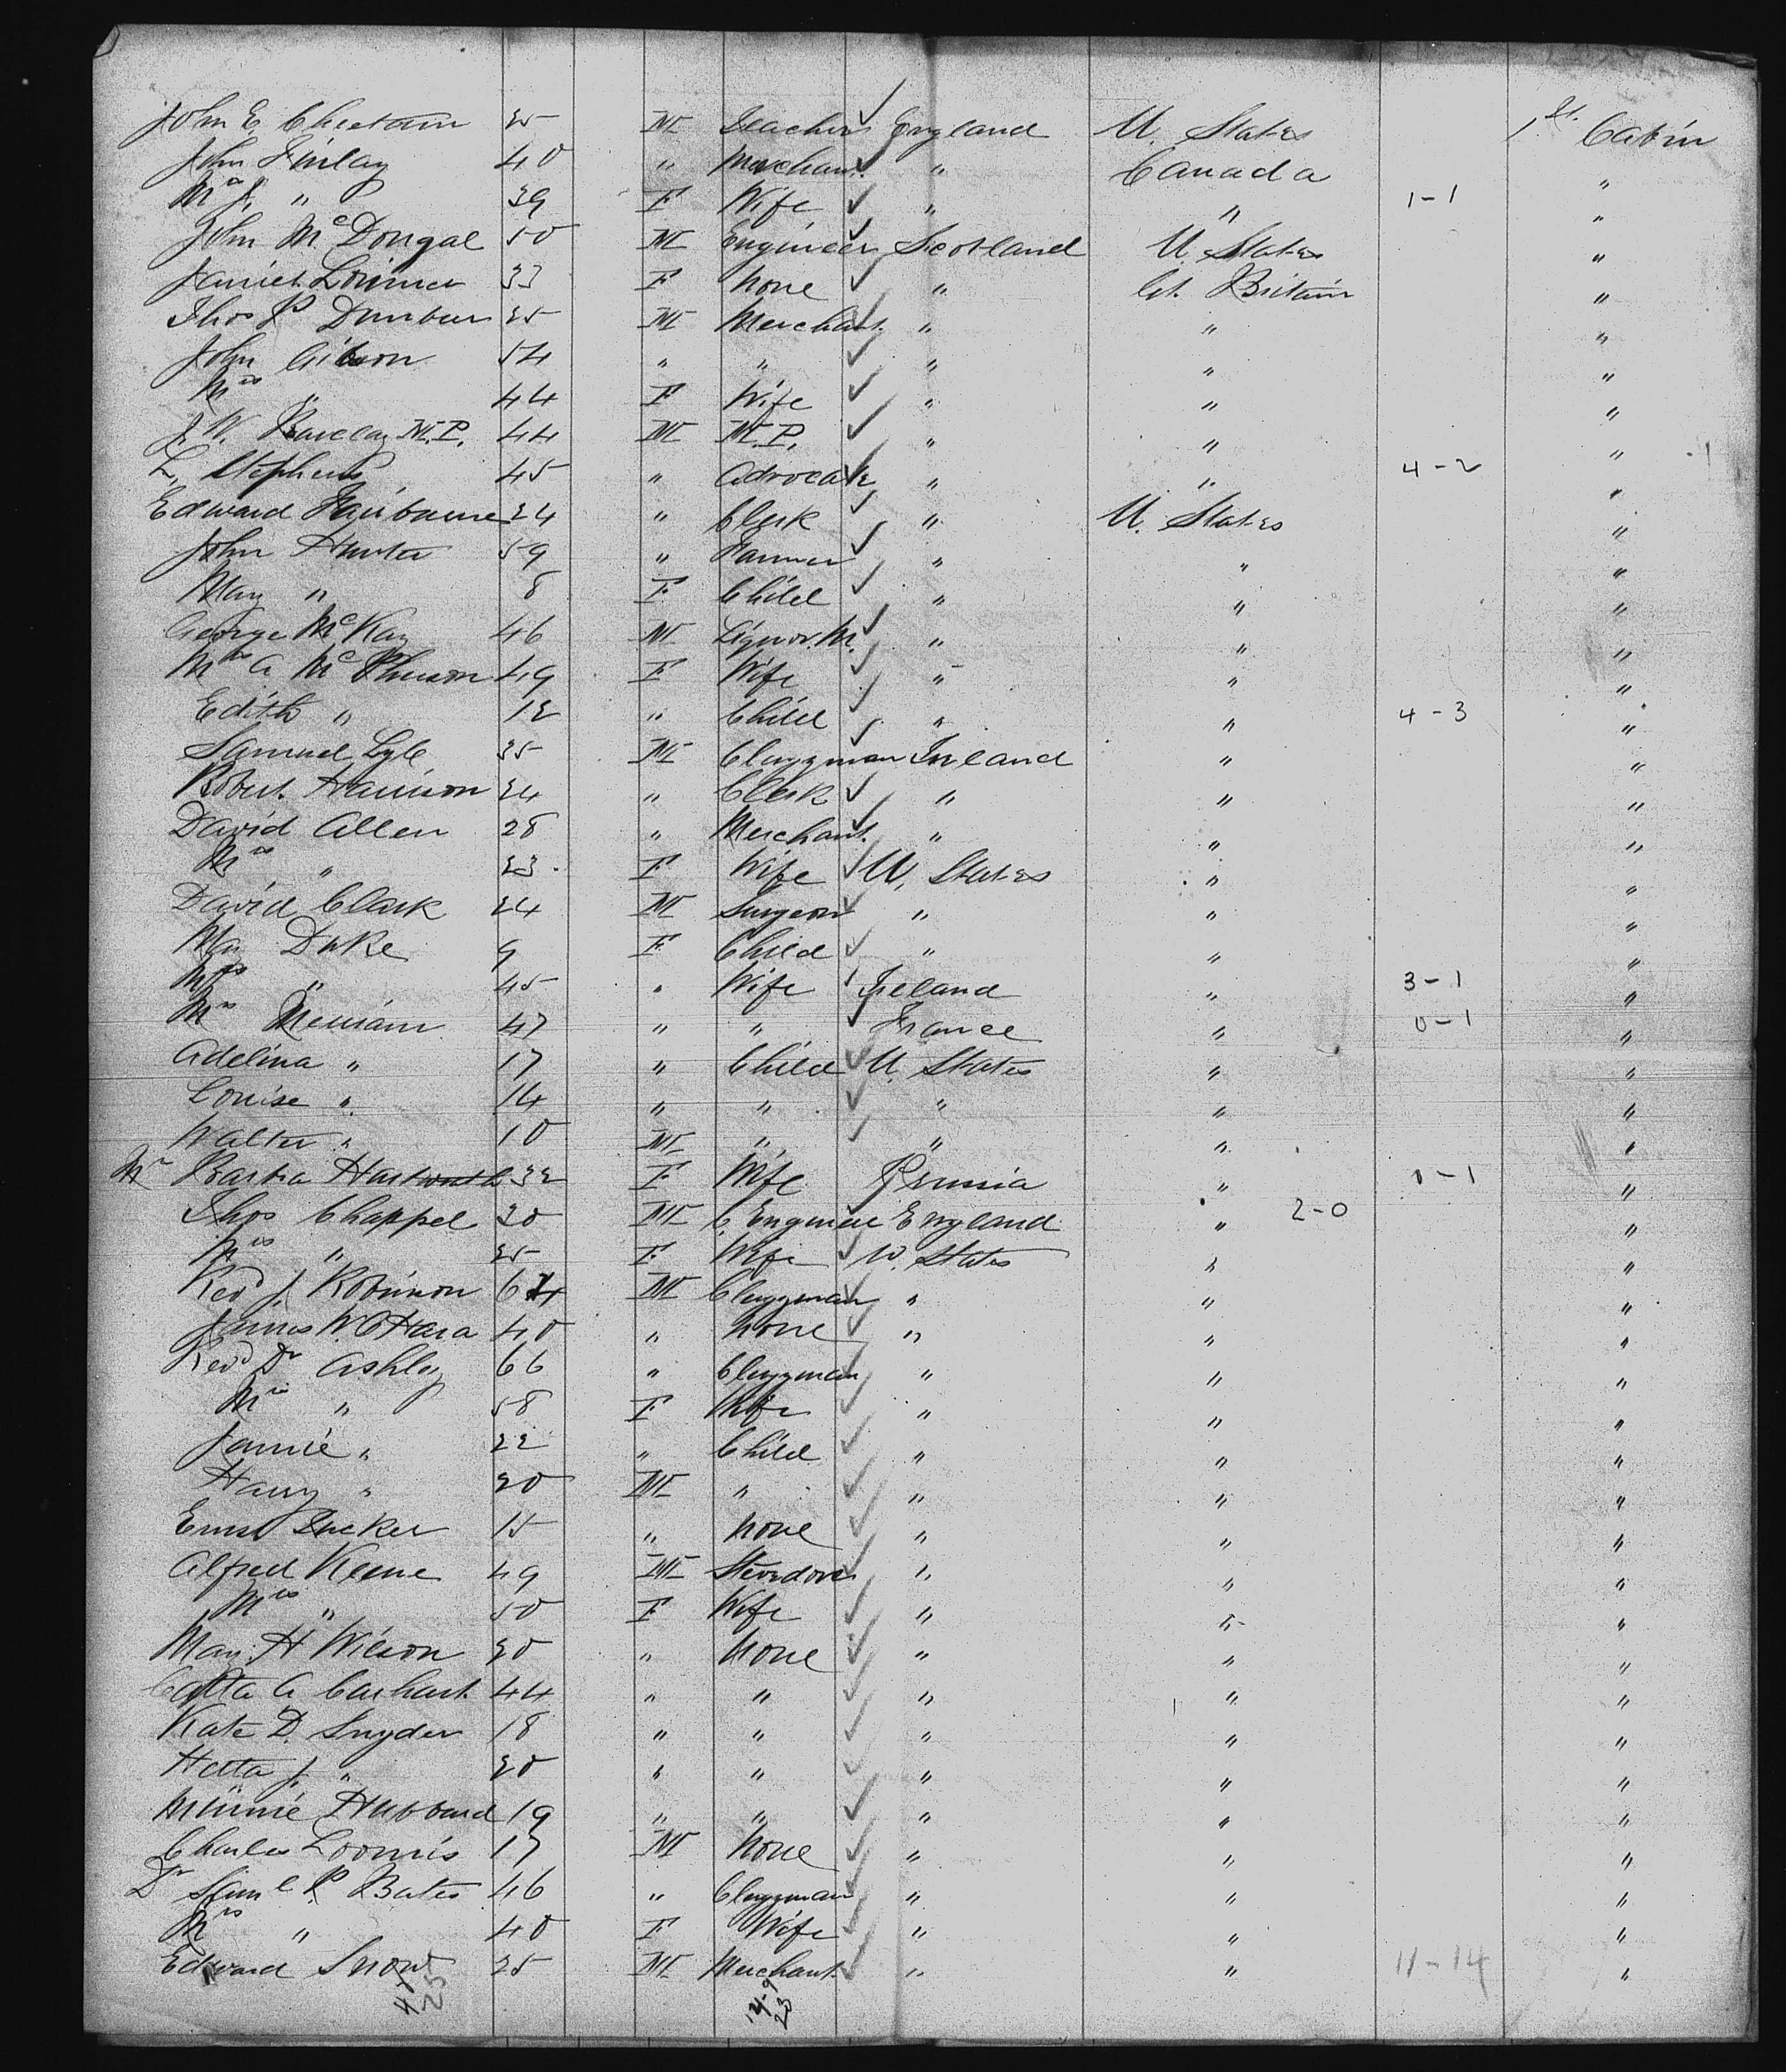 John E. Cheetam 25 M Teacher England U. States 1.st Cabin
John Finlay 40 " Merchant " Canada "
Mrs J. " 39 F Wife " " 1-1 "
John McDongal 50 M Engineer Scotland U. States "
Janiet Lorimer 33 F None " Gt. Britain "
Thos P Dunbar 25 M Merchant " " "
John Gibson 54 " " " " "
Mrs " 44 F Wife " " "
J. W. Barclay M.P. 44 M M.P. " " "
L. Stephens 45 " Advocate " " 4-2 "
Edward Fairbourne 24 " Clerk " U. States "
John Hunter 59 " Farmer " " "
May " 8 F Child " " "
George McKay 46 M Liquor. M. " " "
Mrs A McPherson 49 F Wife " " "
Edith " 12 " Child " " 4-3 "
Samuel Lyle 35 M Clergyman Ireland " "
Robert. Harrison 24 " Clerk " " "
David Allen 28 " Merchant. " " "
Mrs " 23 F Wife U. States " "
David Clark 24 M Surgeon " " "
May Duke 9 F Child " " "
Mrs " 45 " Wife Ireland " 3-1 "
Mrs Merriam 47 " " France " 0-1 "
Adelina " 17 " Child U. States " "
Louise " 14 " " " " "
Walter " 10 M " " " "
Mrs Bartra 32 F Wife Prussia " 0-1 "
Thos Chappel 30 M C. Engineer England " 2-0 "
Mrs " 25 F Wife U. States " "
Revd J. Robinson 64 M Clergyman " " "
James W. O'Hara 40 " None " " "
Revd Dr Ashley 66 " Clergyman " " "
Mrs " 58 F Wife " " "
Jannie " 22 " Child " " "
Harry " 20 M " " " "
Ernst Tucker 15 " None " " "
Alfred Keene 49 M Stevedore " " "
Mrs " 50 F Wife " " "
May. H Wilson 30 " None " " "
A Carhart. 44 " " " " "
Kate D. Snyder 18 " " " " "
Hetta J. " 20 " " " " "
Minnie Hubbard 19 " " " " "
Charles Loomis 17 M None " " "
Dr Saml P. Bates 46 " Clergyman " " "
Mrs " 40 F Wife " " "
Edward Snow 25 M Merchant. " " 11-14 "